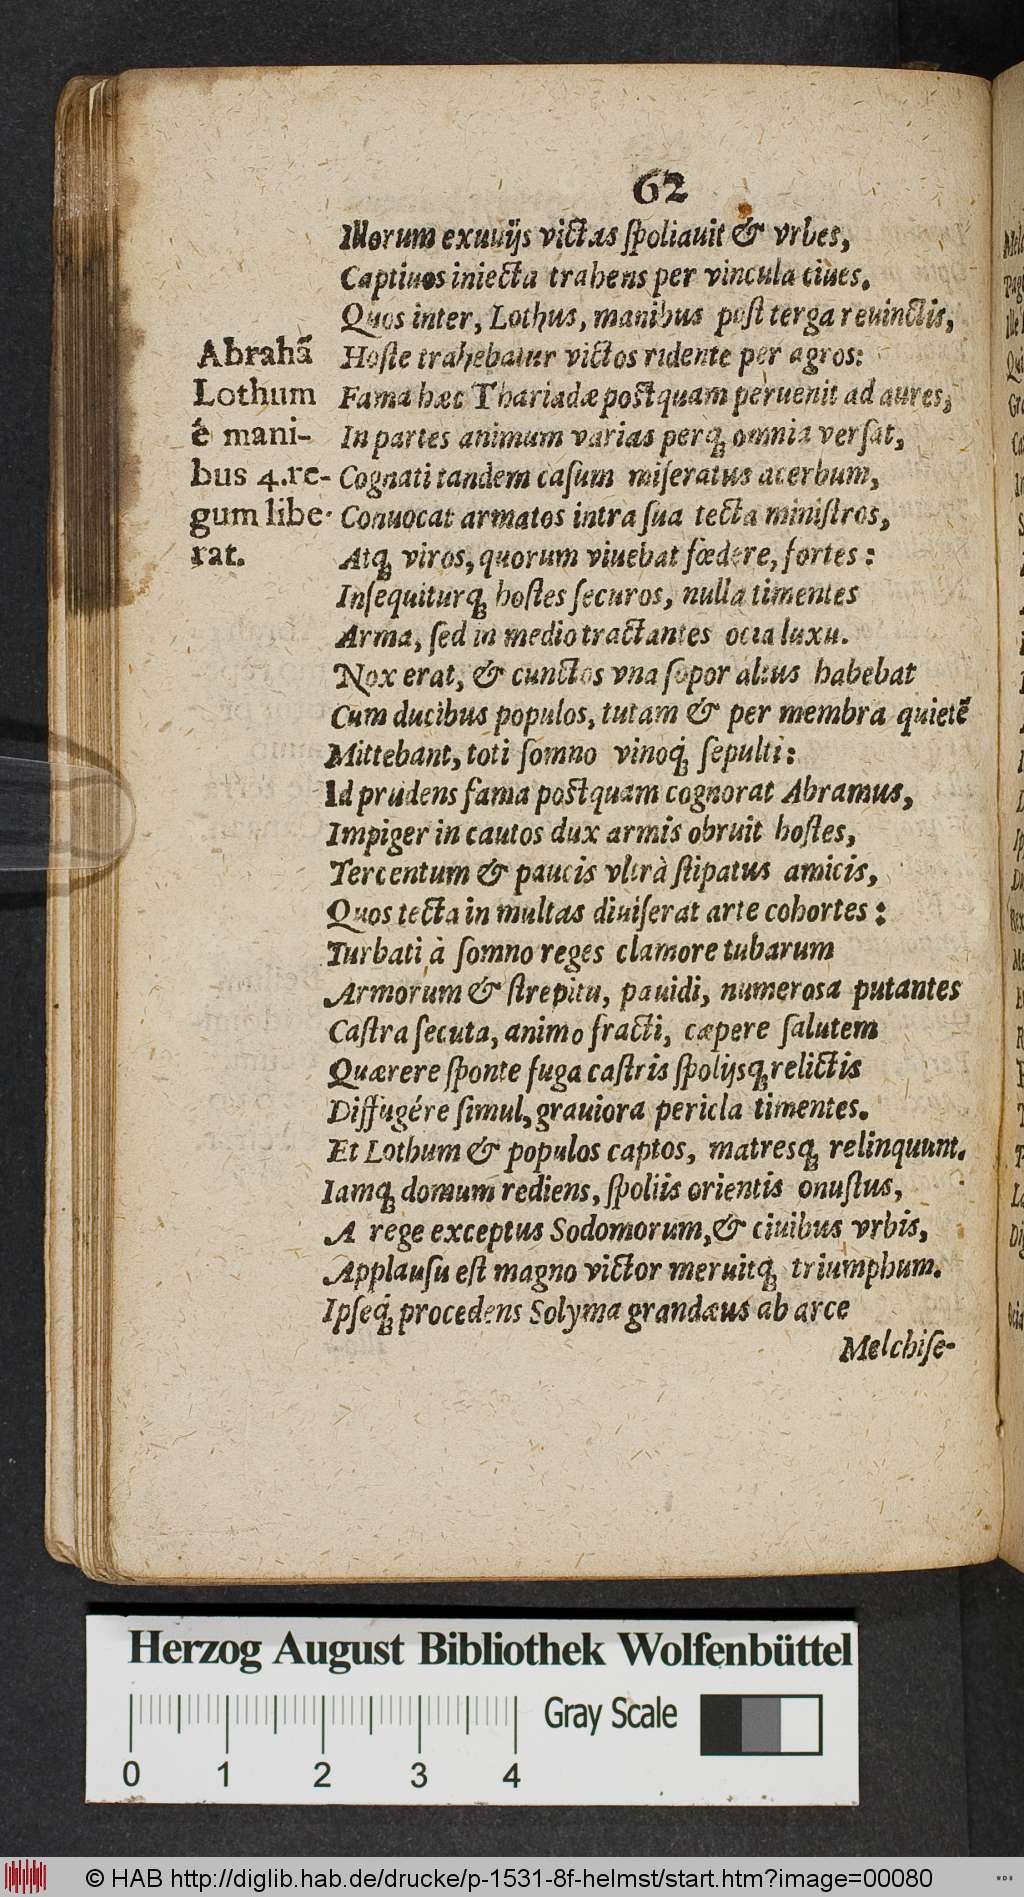 62
Illorum exuuijs victas ſpoliauit & vrbes,
Captiuos iniecta trahens per vincula ciues.
Quos inter, Lothus, manibus poſt terga reuinctis,
Hoſte trahebatur victos ridente per agros:
Fama hæc Thariadæ poſtquam peruenit ad aures,
In partes animum varias perq́; omnia verſat,
Cognati tandem caſum miſeratus acerbum,
Conuocat armatos intra ſua tecta miniſtros,
Atq́; viros, quorum viuebat fœdere, fortes:
Inſequiturq́; hoſtes ſecuros, nulla timentes
Arma, ſed in medio tractantes ocia luxu.
Nox erat, & cunctos vna ſopor altus habebat
Cum ducibus populos, tutam & per membra quietẽ
Mittebant, toti ſomno vinoq́; ſepulti:
Id prudens fama poſtquam cognorat Abramus,
Impiger in cautos dux armis obruit hoſtes,
Tercentum & paucis vltrà ſtipatus amicis,
Quos tecta in multas diuiſerat arte cohortes:
Turbati à ſomno reges clamore tubarum
Armorum & ſtrepitu, pauidi, numerosa putantes
Caſtra ſecuta, animo fracti, cæpere ſalutem
Quærere ſponte fuga caſtris ſpolijsq́; relictis
Diffugére ſimul, grauiora pericla timentes.
Et Lothum & populos captos, matresq́; relinquunt.
Iamq́; domum rediens, ſpoliis orientis onuſtus,
A rege exceptus Sodomorum, & ciuibus vrbis,
Applauſu eſt magno victor meruitq́; triumphum.
Ipſeq́; procedens Solyma grandæus ab arce
Melchiſe-
Abrahã
Lothum
è mani-
bus 4. re-
gum libe-
rat.
Herzog August Bibliothek Wolfenbüttel
Gray Scale
0 1 2 3 4
© HAB http://diglib.hab.de/drucke/p-1531-8f-helmst/start.htm?image=00080